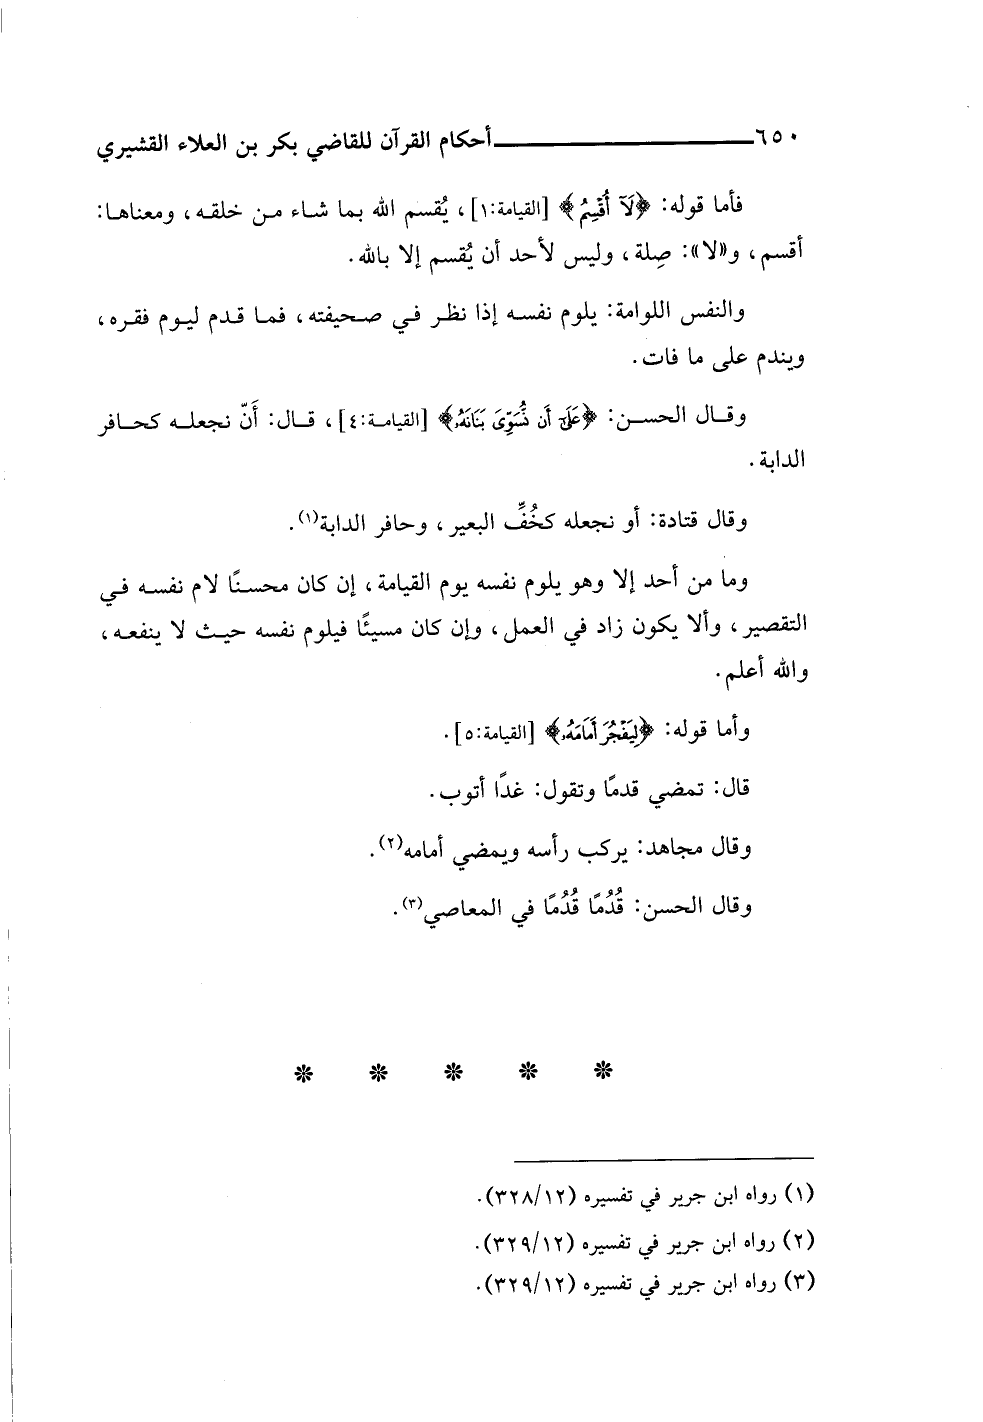 ٦٥٠ أحكام القرآن للقاضي بكر بن العلاء القشيري
فأما قوله: ﴿لَآ أُقْسِمُ﴾ [القيامة:١]، يُقسم الله بما شاء من خلقه، ومعناها:
أقسم، و«لا»: صِلة، وليس لأحد أن يُقسم إلا بالله.
والنفس اللوامة: يلوم نفسه إذا نظر في صحيفته، فما قدم ليوم فقره،
ويندم على ما فات.
وقال الحسن: ﴿عَلَىٰٓ أَن نُّسَوِّىَ بَنَانَهُۥ﴾ [القيامة:٤]، قال: أَنّ نجعله كحافر
الدابة.
وقال قتادة: أو نجعله كخُفِّ البعير، وحافر الدابة(١).
وما من أحد إلا وهو يلوم نفسه يوم القيامة، إن كان محسنًا لام نفسه في
التقصير، وألا يكون زاد في العمل، وإن كان مسيئًا فيلوم نفسه حيث لا ينفعه،
والله أعلم.
وأما قوله: ﴿لِيَفْجُرَ أَمَامَهُۥ﴾ [القيامة:٥].
قال: تمضي قدمًا وتقول: غدًا أتوب.
وقال مجاهد: يركب رأسه ويمضي أمامه(٢).
وقال الحسن: قُدُمًا قُدُمًا في المعاصي(٣).
(١) رواه ابن جرير في تفسيره (٣٢٨/١٢).
(٢) رواه ابن جرير في تفسيره (٣٢٩/١٢).
(٣) رواه ابن جرير في تفسيره (٣٢٩/١٢).